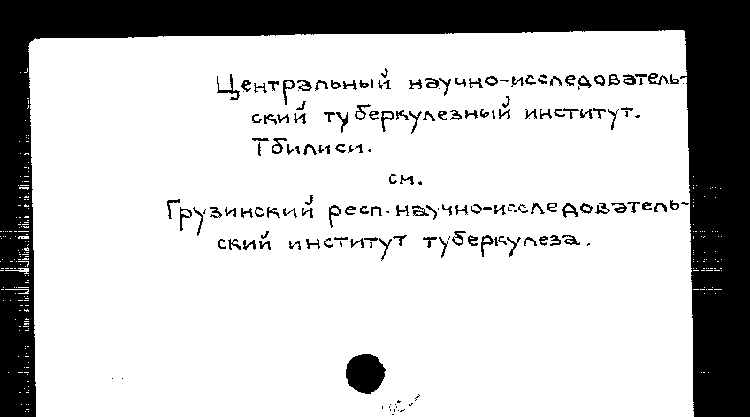 Центральный научно-исследователь-
ский туберкулезный институт.
Тбилиси.
см.
Грузинский респ. научно-исследователь-
ский институт туберкулеза.